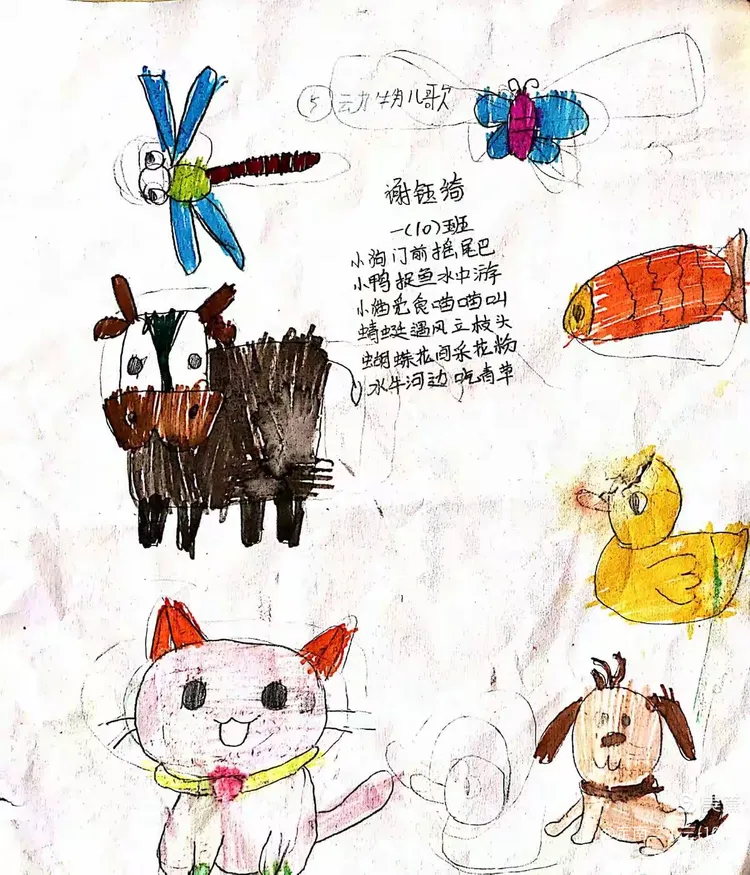 ⑤ 动物儿歌
谢钰绮
一(10)班
小狗门前摇尾巴
小鸭捉鱼水中游
小猫觅食喵喵叫
蜻蜓遇风立枝头
蝴蝶花间采花粉
水牛河边吃青草